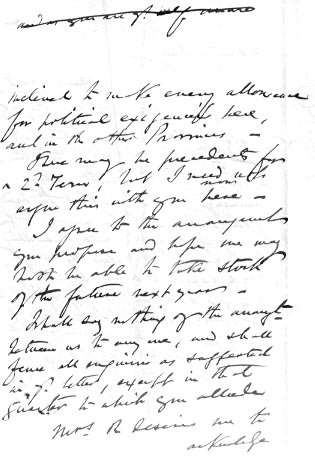 and as you are y. self aware
inclined to make every allowance
for political exigencies here,
and in the other Provinces –
There may be precedents for
a 2nd Term, but I need not
argue this with you here –
now
I agree to the arrangement
you propose and hope we may
both be able to take stock
of the future next year –
I shall say nothing of the arrangt
between us to any one, and shall
fence all enquiries as suggested
in yr. letter, except in that
quarter to which you allude
Mrs R desires me to
acknowledge